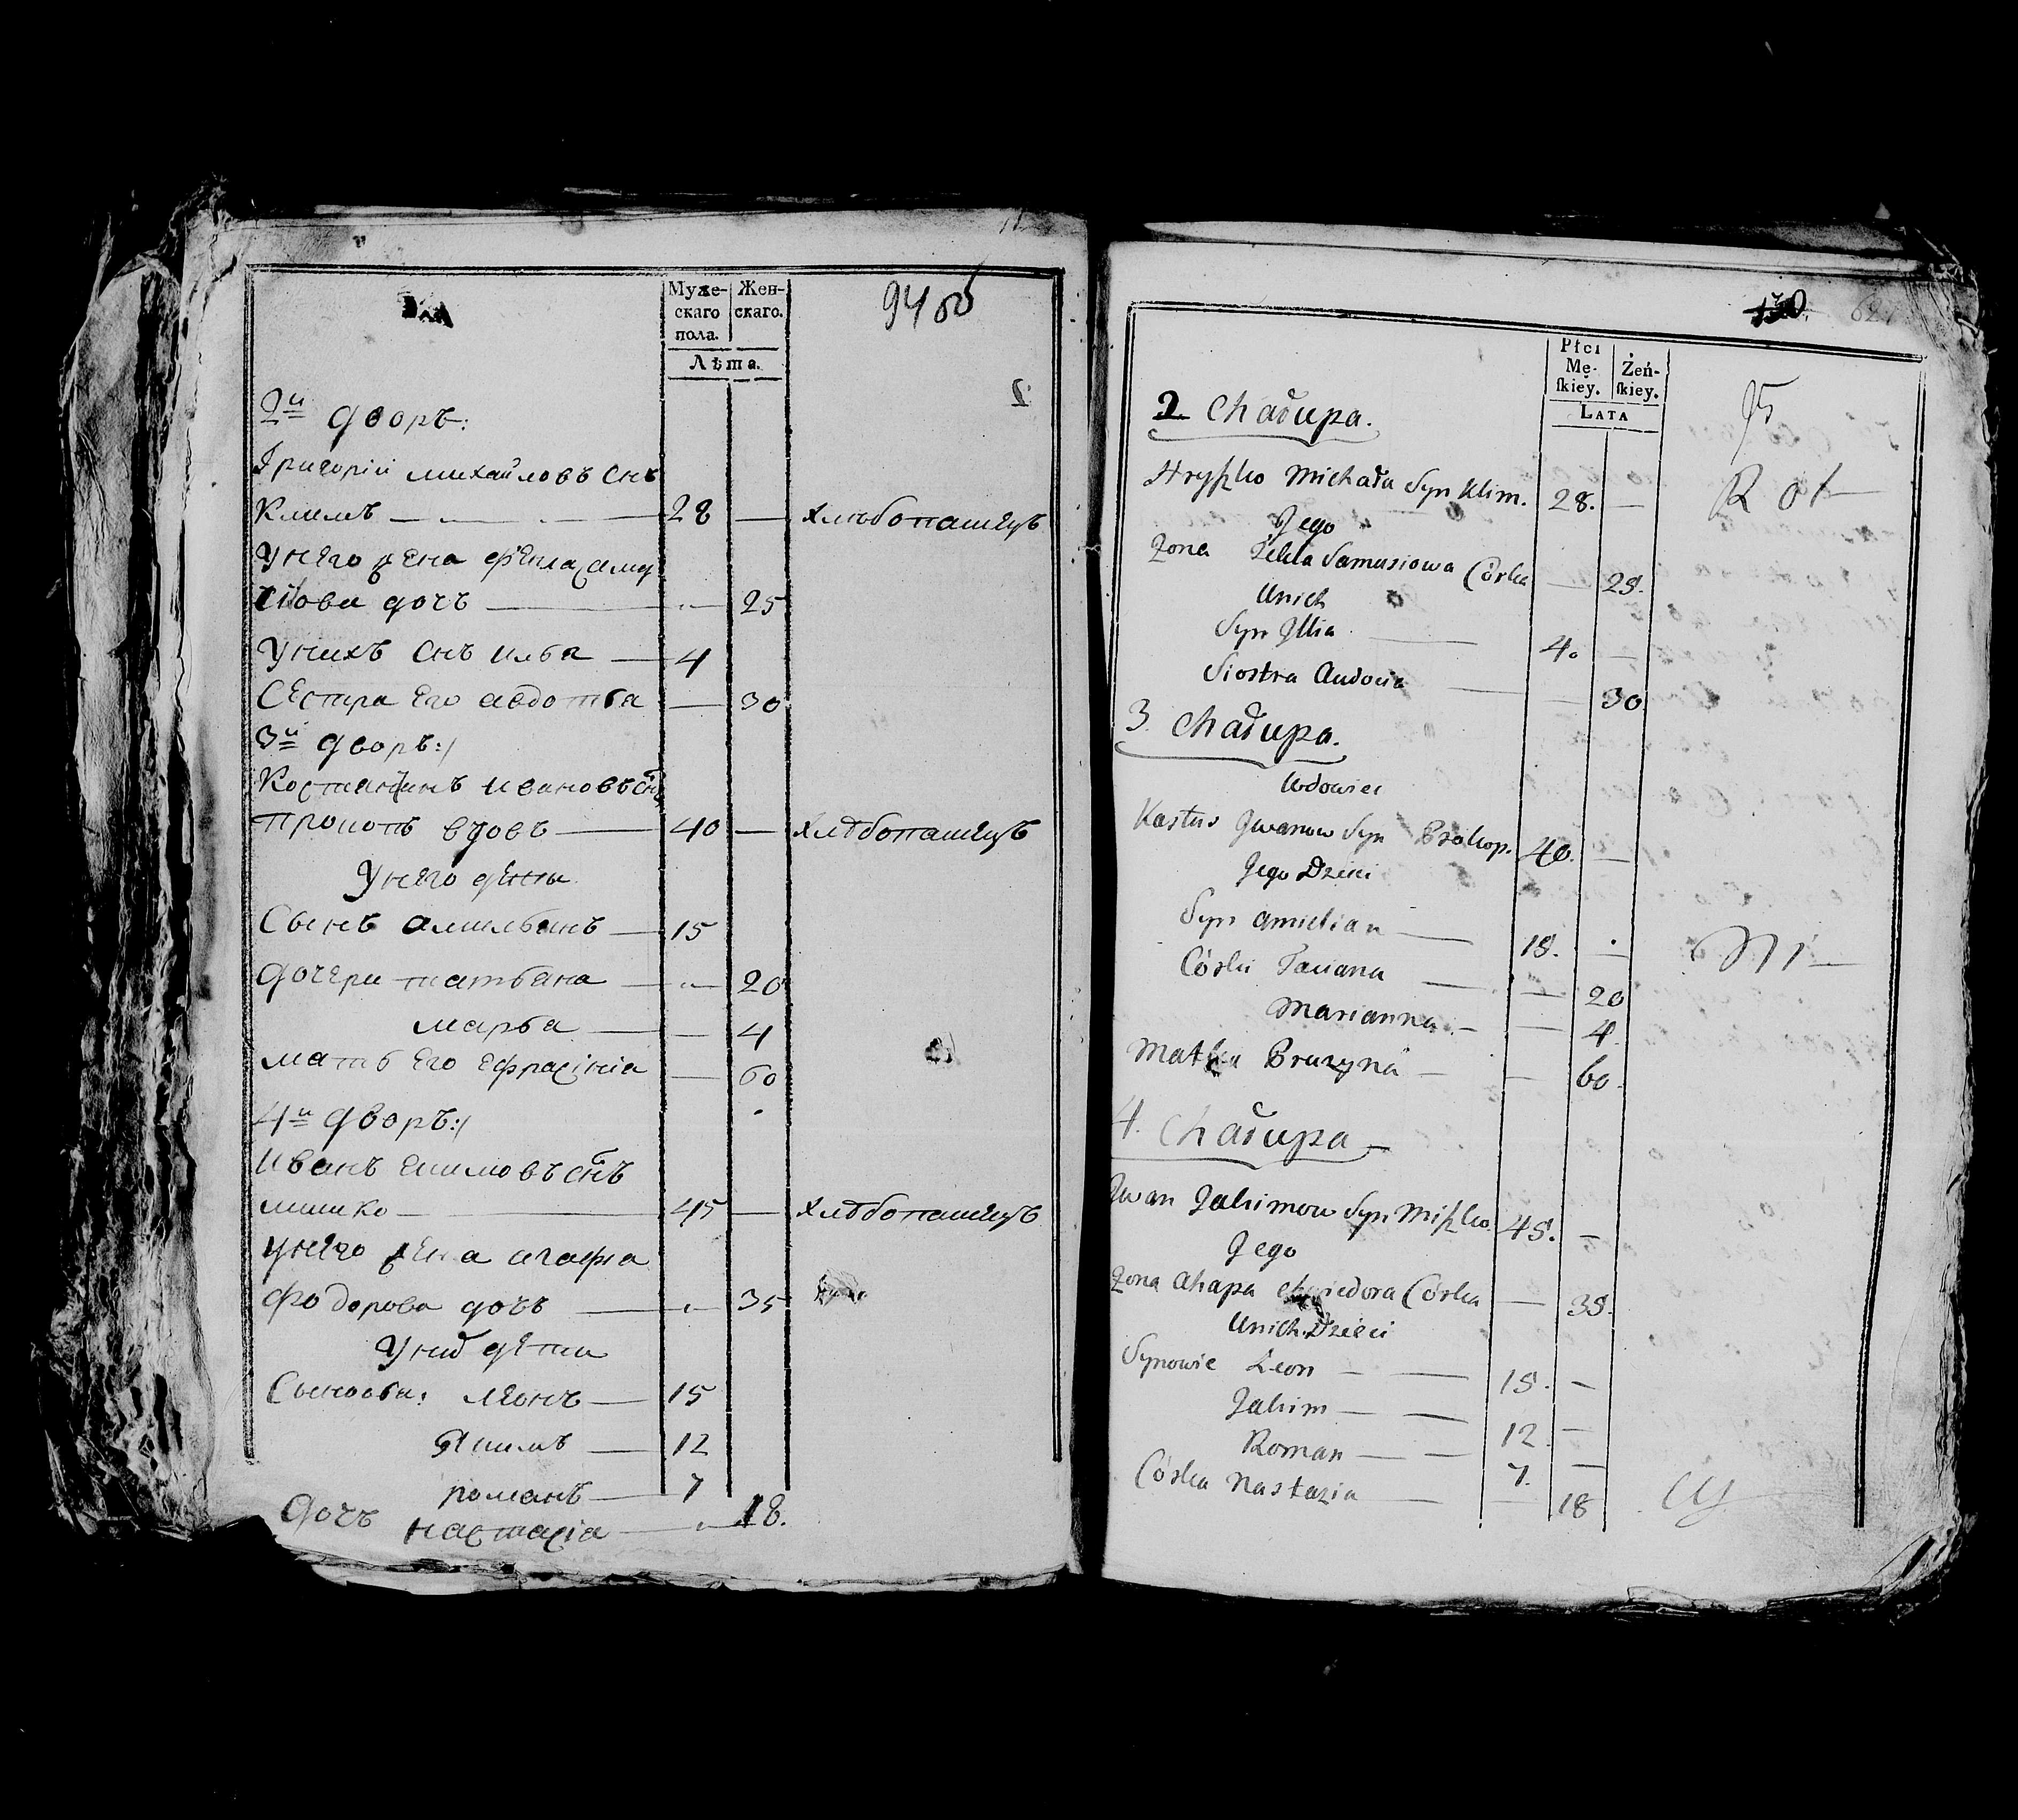 Муже-
скаго
пола.
Жен-
скаго.
Лѣта.
94 об
2й дворъ:
Григорій михайловъ снъ
Климъ — 28 — хлѣбопашецъ
У него жена фекла саму
сіова дочъ — 25
У нихъ снъ илья — 4
Сестра его авдотья — 30
3й дворъ:/
Костантинъ ивановъ снъ
прокопъ вдовъ — 40 — хлѣбопашецъ
У него дети
Сынъ амильянъ — 15
дочери татьяна — 20
марья — 4
мать его ефрасінія — 60
4й дворъ:/
Иванъ екимовъ снъ
мишко — 45 — хлѣбопашецъ
У него жена агафиа
фодорова дочъ — 35
У них дети
Сыновья: леонъ — 15
Якимъ — 12
романъ — 7
дочъ настасія — 18.
Płci
Mę-
ſkiey.
Żeń-
ſkiey.
LATA
95
2 Chałupa.
Hryszko Michała Syn Klim. 28. —
Jego
Żona Tekla Samusiowa Córka — 25.
U nich
Syn Illia — 4. —
Siostra Audocia — 30
3 Chałupa.
Wdowiec
Kastus Jwanow Syn Prokop. 40. —
Jego Dzieci
Syn Amielian — 15.
Córki Taciana — 20
Marianna — 4
Matka Pruzyna — 60
4. Chałupa —
Jwan Jakimow Syn Miszko 45. —
Jego
Żona Ahapa Córka — 35.
U nich Dzieci
Synowie Leon — 15. —
Jakim — 12 —
Roman — 7. —
Córka Nastazia — 18